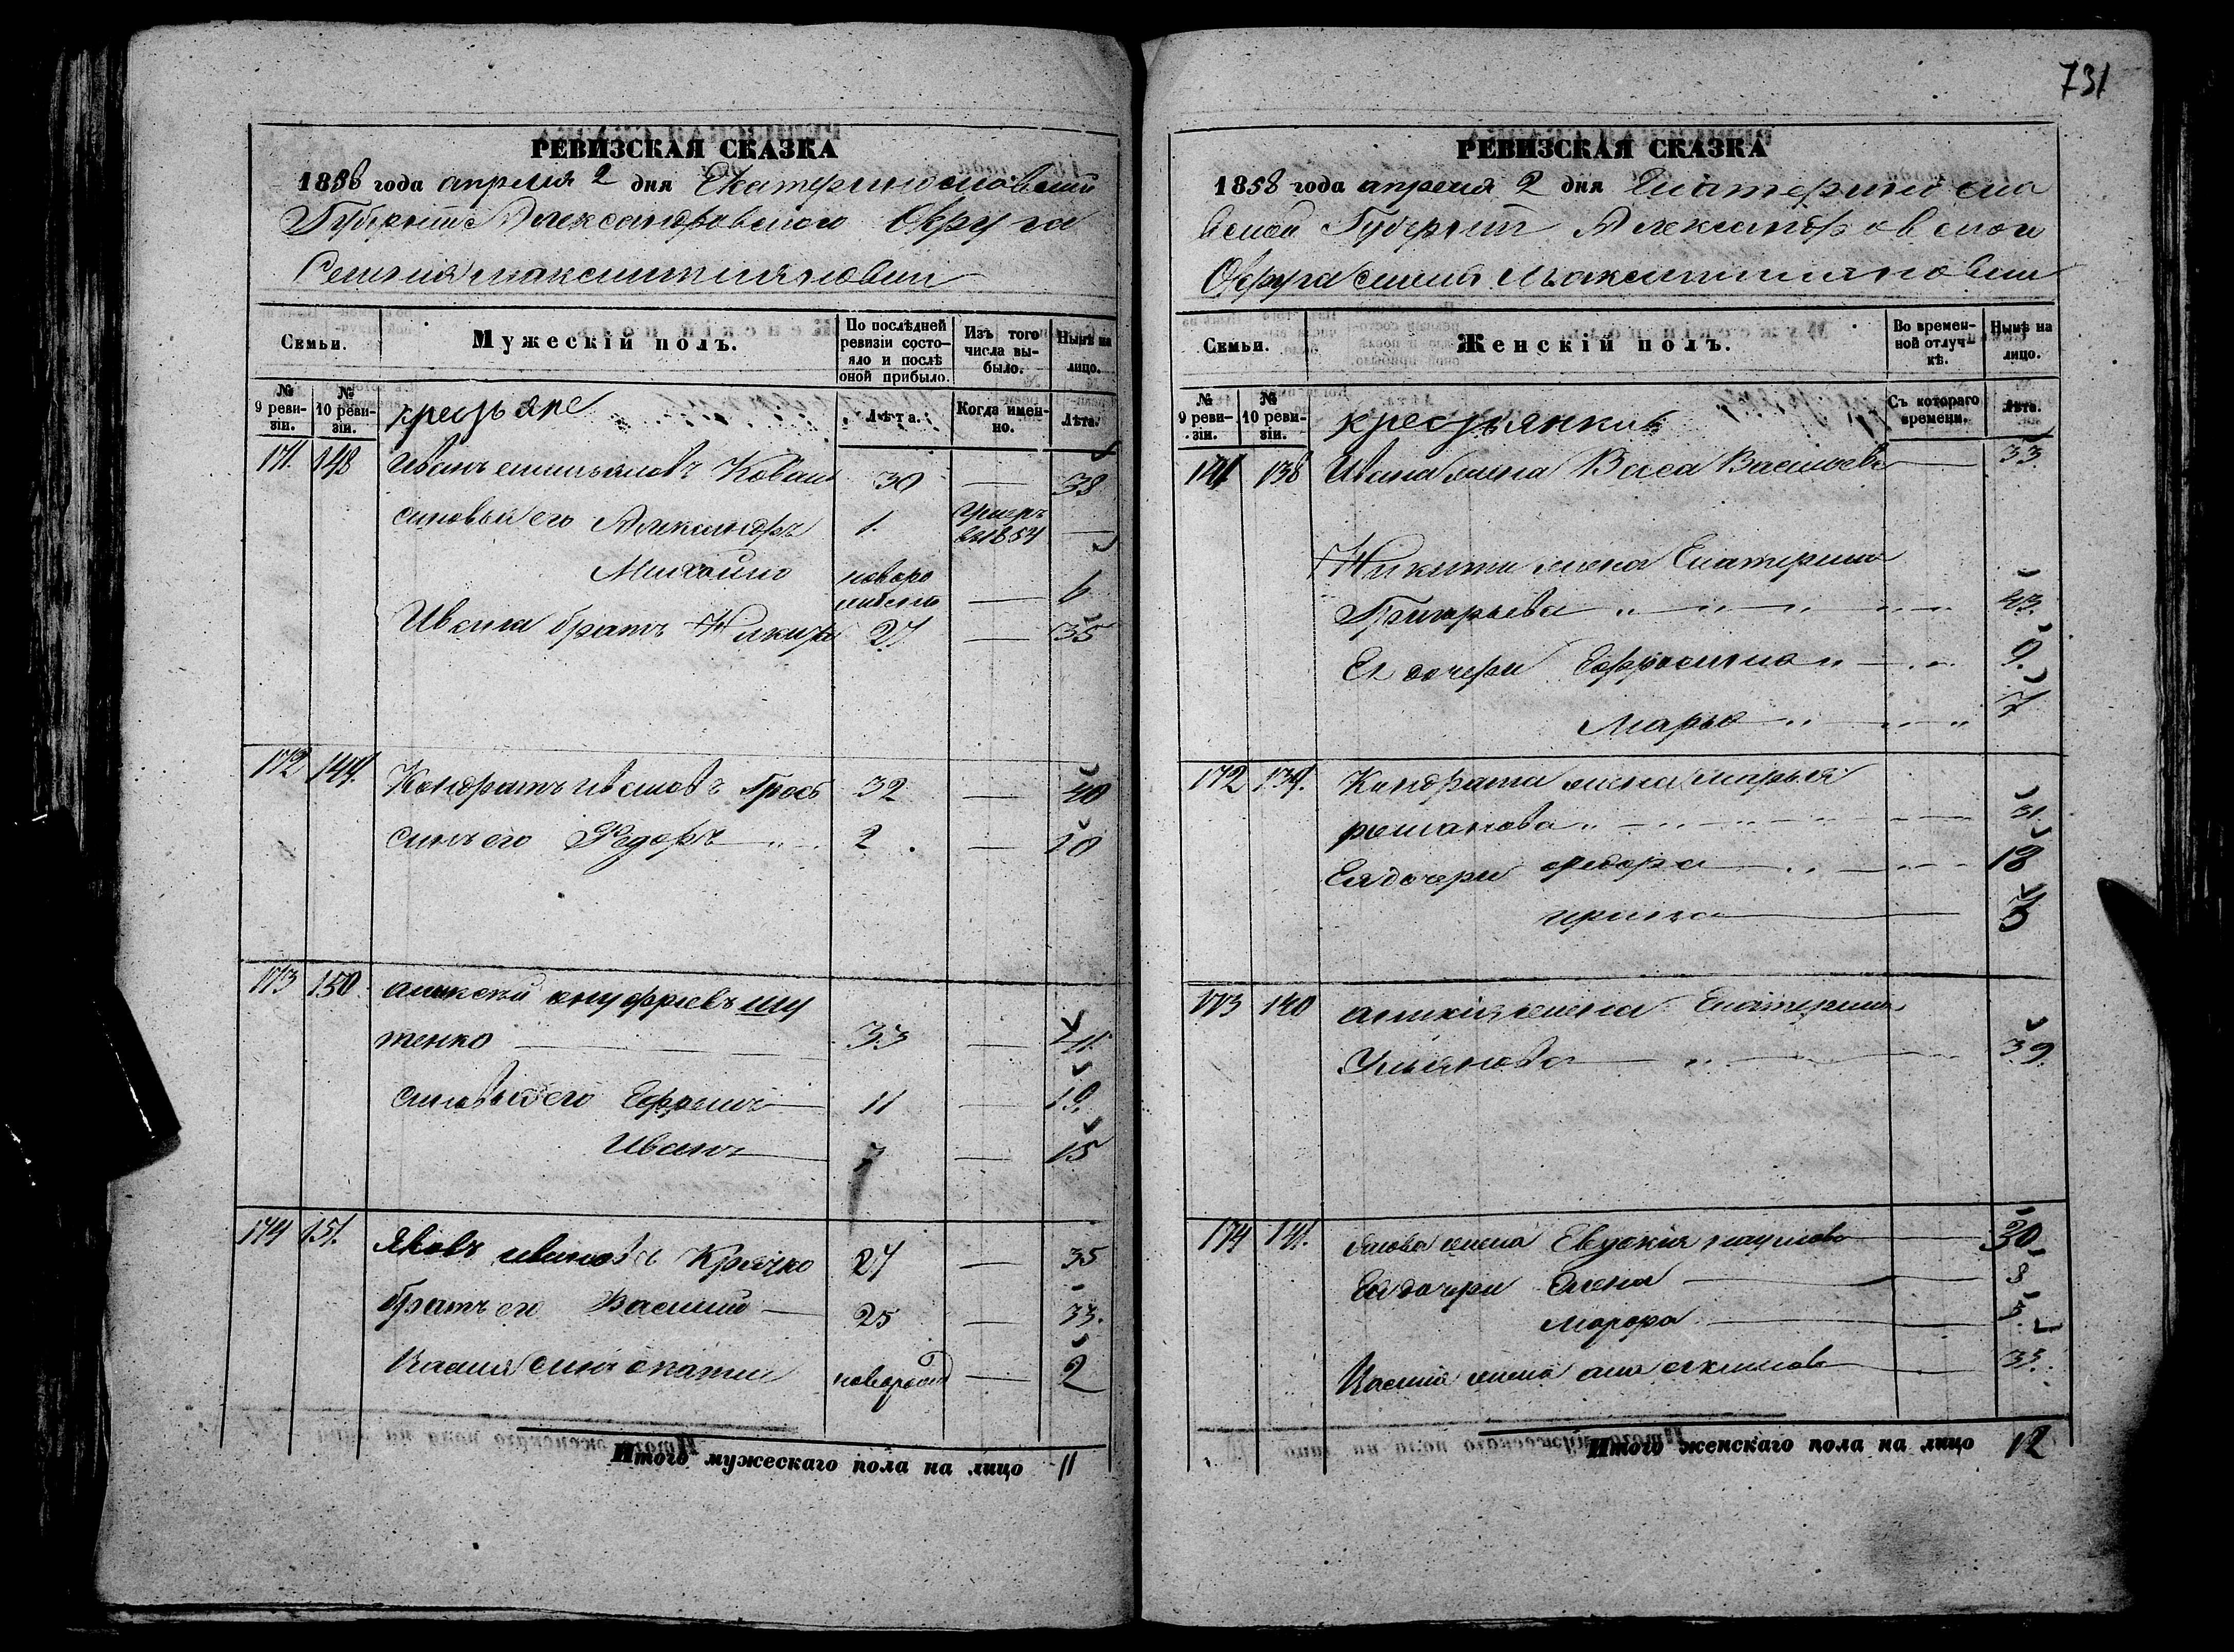 731
РЕВИЗСКАЯ СКАЗКА
1858 года апреля 2 дня Екатеринославской
Губернии Александровского Округа
Селения Максимилиановки
Семьи.
Мужескій полъ.
По послѣдней ревизіи состояло и послѣ оной прибыло.
Изъ того числа выбыло.
Нынѣ на лицо.
№ 9 ревизіи.
№ 10 ревизіи.
крестьяне
Лѣта.
Когда именно.
Лѣта.
171. 148 Иванъ Емельяновъ Ковал 30 — 38
сыновья его Александръ 1. Умеръ в 1854 —
Михайло новоро
жденъ — 6
Ивана братъ Никита 27 — 35
172 149. Кондратъ Ивановъ Грось 32 — 40
сынъ его Федоръ 2. — 10
173 150 алексѣй ануфріевъ шу
тенко 33 — 41.
сыновья его Ефремъ 11 — 19.
Иванъ 7 — 15
174 151. Яковъ ивановъ Крячко 27 — 35
братъ его Василий 25 — 33.
Василия сынъ новорожд — 2
Итого мужескаго пола на лицо 11
РЕВИЗСКАЯ СКАЗКА
1858 года апреля 2 дня Екатериносла
вской Губернии Александровского
Округа селения Максимилиановки
Семьи.
Женскій полъ.
Во временной отлучкѣ.
Нынѣ на лицо.
№ 9 ревизіи.
№ 10 ревизіи.
крестьянки
Съ котораго времени.
Лѣта.
171 138 Ивана жена Васса Васильева — 33
Никиты жена Екатерина
Григорьева 43.
Ея дочери Ефросинья 9.
Марья 7
172 139. Кондрата жена марья
романова 31
Ея дочери федора 18
ирина 5
173 140 алексія жена Екатерина
Ульянова 39.
174 141. Якова жена Евдокия наумова 30
Ея дочери Елена 8
5.
Василия жена акимова 33.
Итого женскаго пола на лицо 12